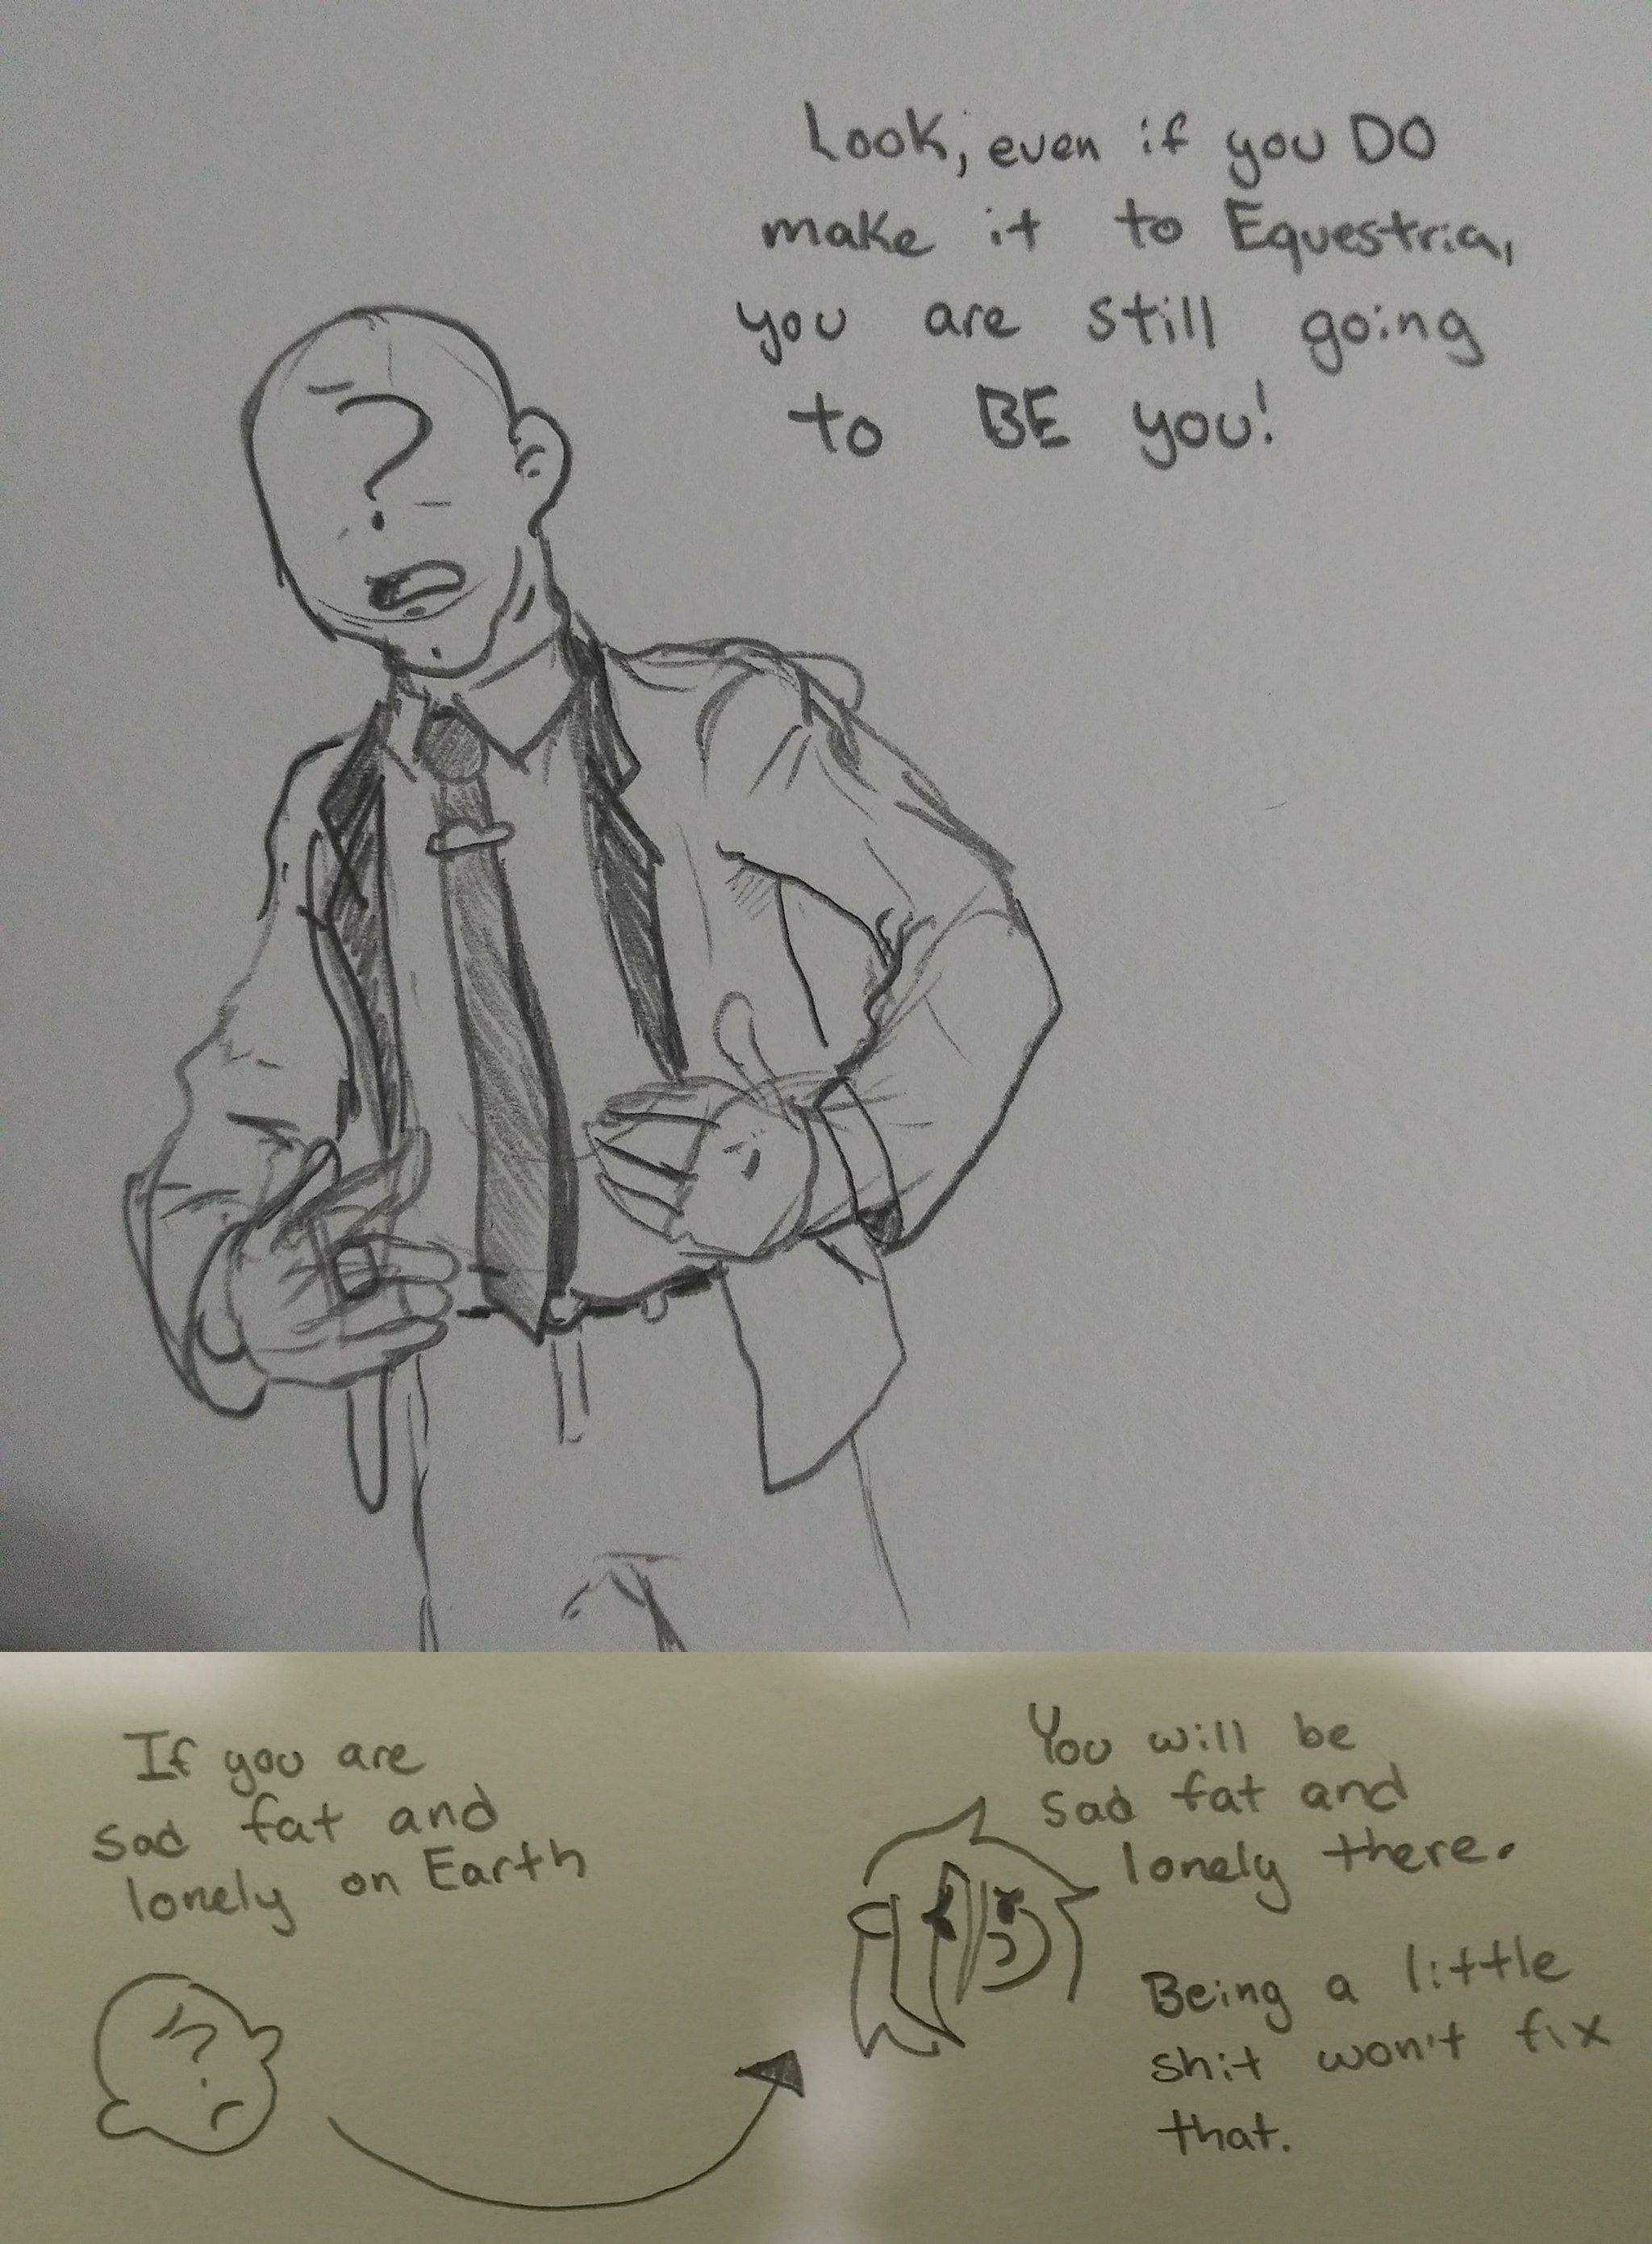 Look, even if you DO
make it to Equestria,
you are still going
to BE you!
?
If you are
sad fat and
lonely on Earth
?
You will be
sad fat and
lonely there.
Being a little
shit won't fix
that.